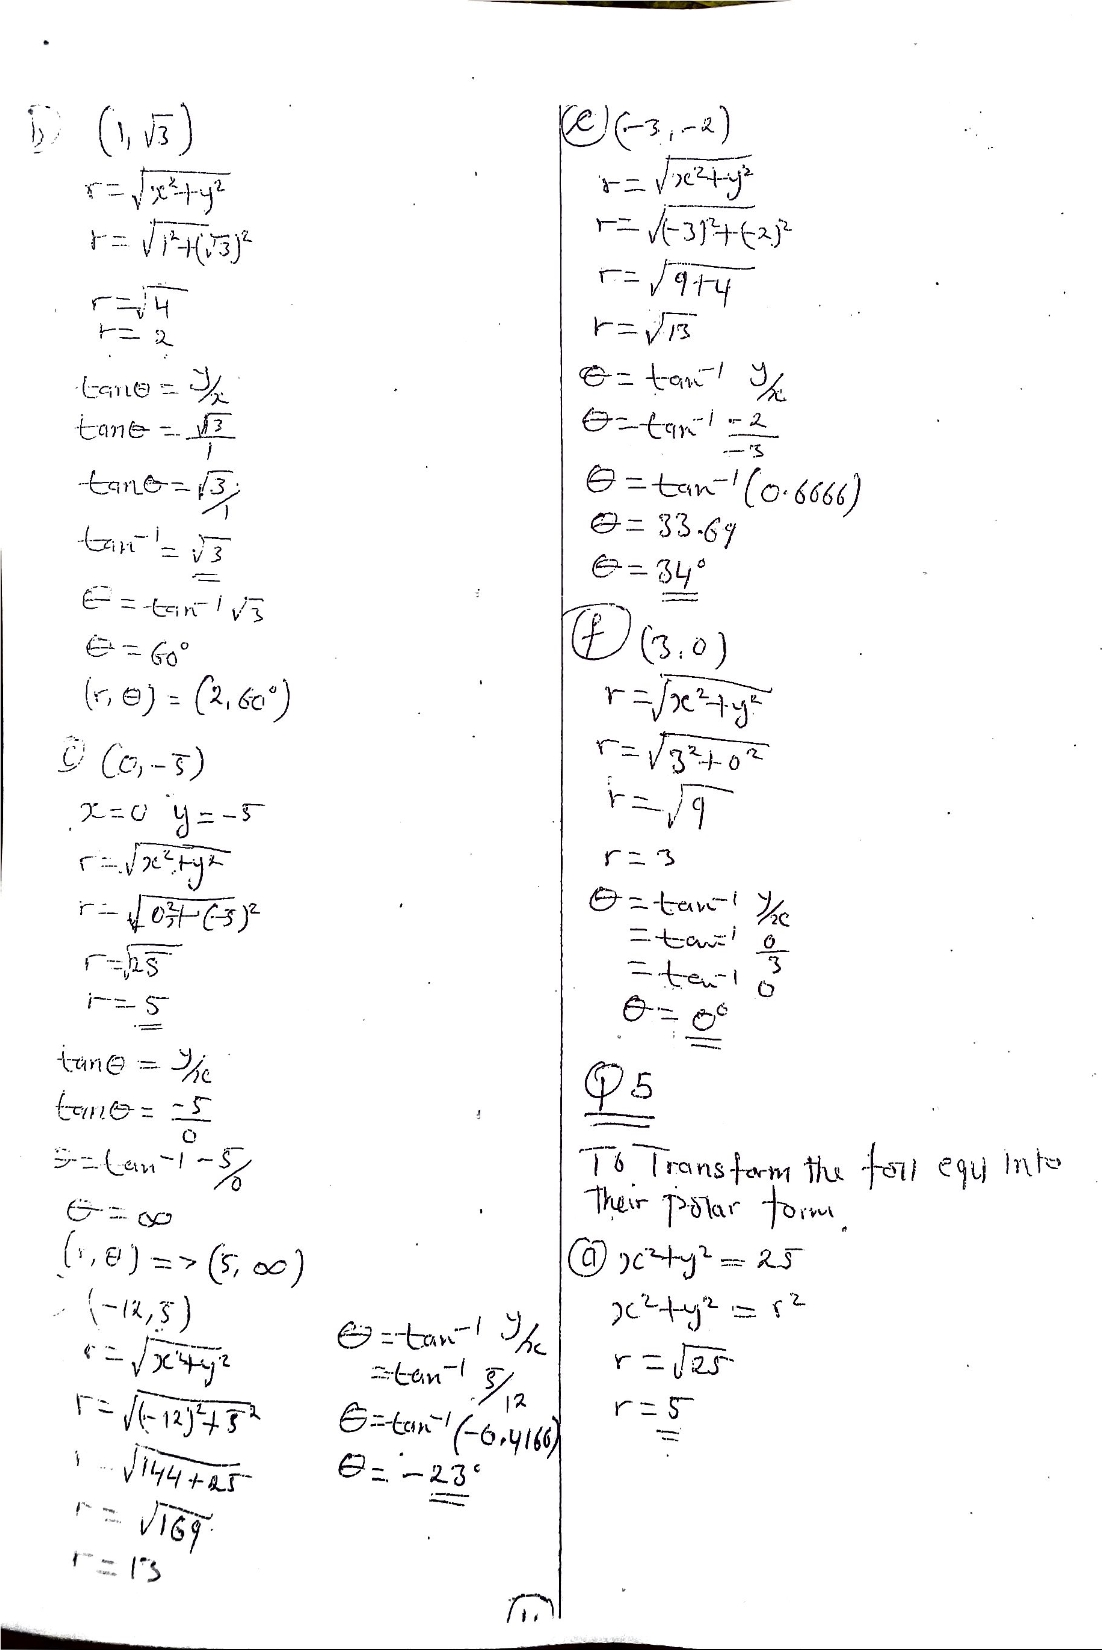 b) (1, √3)
r = √x²+y²
r = √1²+(√3)²
r = √4
r = 2
tanθ = y/x
tanθ = √3/1
tanθ = √3/1
tan⁻¹ = √3
θ = tan⁻¹ √3
θ = 60°
(r, θ) = (2, 60°)
c) (0, -5)
x=0 y = -5
r = √x²+y²
r = √0²+(-5)²
r = √25
r = 5
tanθ = y/x
tanθ = -5/0
θ = tan⁻¹ -5/0
θ = ∞
(r, θ) => (5, ∞)
(-12, 5)
r = √x²+y²
r = √(-12)²+5²
r = √144+25
r = √169
r = 13
θ = tan⁻¹ y/x
= tan⁻¹ 5/12
θ = tan⁻¹ (-0.4166)
θ = -23°
(e) (-3, -2)
r = √x²+y²
r = √(-3)²+(-2)²
r = √9+4
r = √13
θ = tan⁻¹ y/x
θ = tan⁻¹ -2/-3
θ = tan⁻¹ (0.6666)
θ = 33.69
θ = 34°
(f) (3, 0)
r = √x²+y²
r = √3²+0²
r = √9
r = 3
θ = tan⁻¹ y/x
= tan⁻¹ 0/3
= tan⁻¹ 0
θ = 0°
Q5
To Transform the foll equ into
Their polar form.
(a) x²+y² = 25
x²+y² = r²
r = √25
r = 5